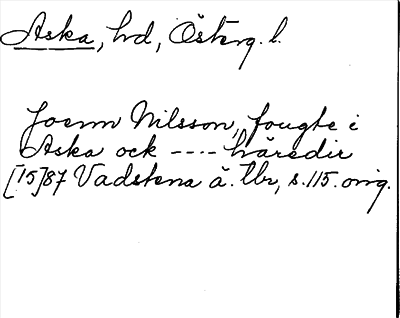 Aska, hd, Österg. l.
Joenn Nilsson, fougte i
Aska ock ---- häredir
[15]87 Vadstena ä. tbr, s. 115. orig.